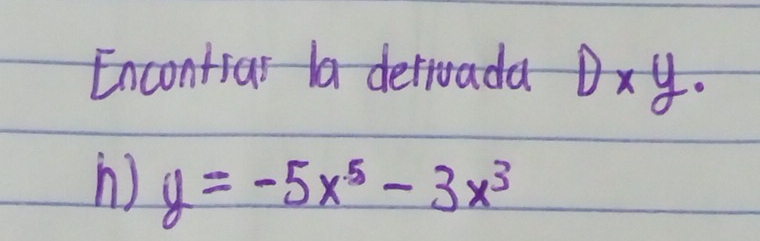 Encontrar la derivada Dxy.
h) y = -5x⁵ - 3x³